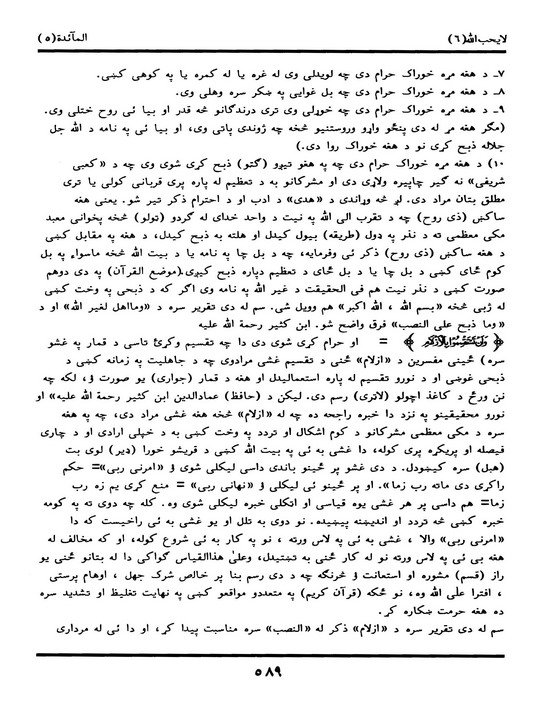 لایحب الله(٦) المآئدة(٥)
٧ـ د هغه مړه خوراک حرام دی چه لویدلی وی له غره یا له کمره یا په کوهی کښی.
٨ـ د هغه مړه خوراک حرام دی چه بل غوایی په ښکر سره وهلی وی.
٩ـ د هغه مړه خوراک حرام دی چه خوړلی وی تری درندگانو څه قدر او بیا ئی روح ختلی وی.
(مگر هغه مړ له دی پنځو واړو وروستنیو څخه چه ژوندی پاتی وی، او بیا ئی په نامه د الله جل
جلاله ذبح کړی نو د هغه خوراک روا دی.)
١٠) د هغه مړه خوراک حرام دی چه په هغو تیږو (گټو) ذبح کړی شوی وی چه د «کعبی
شریفی» نه گیر چاپیره ولاړی دی او مشرکانو به د تعظیم له پاره پری قربانی کولی یا تری
مطلق بتان مراد دی. لږ څه وړاندی د «هدی» د ادب او د احترام ذکر تیر شو. یعنی هغه
ساکښ (ذی روح) چه د تقرب الی الله په نیت د واحد خدای له گردو (ټولو) څخه پخوانی معبد
مکی معظمی ته د نذر په ډول (طریقه) بیول کیدل او هلته به ذبح کیدل، د هغه په مقابل کښی
د هغه ساکښ (ذی روح) ذکر ئی وفرمایه، چه د بل چا په نامه یا د بیت الله څخه ماسواء په بل
کوم ځای کښی د بل چا یا د بل ځای د تعظیم دپاره ذبح کیږی.(موضع القرآن) په دی دوهم
صورت کښی د نذر نیت هم فی الحقیقت د غیر الله په نامه وی اگر که د ذبحی په وخت کښی
له ژبی څخه «بسم الله ، الله اکبر» هم وویل شی. سم له دی تقریر سره د «ومااهل لغیر الله» او د
«وما ذبح علی النصب» فرق واضح شو. ابن کثیر رحمة الله علیه
= او حرام کړی شوی دی دا چه تقسیم وکړئ تاسی د قمار په غشو
سره) ځینی مفسرین د «ازلام» څنی د تقسیم غشی مرادوی چه د جاهلیت په زمانه کښی د
ذبحی غوښی او د نورو تقسیم له پاره استعمالیدل او هغه د قمار (جواری) یو صورت ؤ، لکه چه
نن ورځ د کاغذ اچولو (لاتری) رسم دی. لیکن د (حافظ) عمادالدین ابن کثیر رحمة الله علیه» او
نورو محققینو په نزد دا خبره راجحه ده چه له «ازلام» څخه هغه غشی مراد دی، چه په هغه
سره د مکی معظمی مشرکانو د کوم اشکال او تردد په وخت کښی به د خپلی ارادی او د چاری
فیصله او پریکړه پری کوله، دا غشی به ئی په بیت الله کښی د قریشو خورا (ډیر) لوی بت
(هبل) سره کیښودل. د دی غشو پر ځینو باندی داسی لیکلی شوی ؤ «امرنی ربی»= حکم
راکړی دی ماته رب زما». او پر ځینو ئی لیکلی ؤ «نهانی ربی» = منع کړی یم زه رب
زما= هم داسی پر هر غشی یوه قیاسی او اټکلی خبره لیکلی شوی وه. کله چه دوی ته په کومه
خبره کښی څه تردد او اندیښنه پیښیده. نو دوی به تلل او یو غشی به ئی راخیست که دا
«امرنی ربی» والا ، غشی به ئی په لاس ورته ، نو په کار به ئی شروع کوله، او که مخالف له
هغه بی ئی په لاس ورته نو له کار څنی به تښتیدل، وعلیٰ هذاالقیاس گواکی دا له بتانو څنی یو
راز (قسم) مشوره او استعانت ؤ څرنگه چه د دی رسم بنا پر خالص شرک جهل ، اوهام پرستی
، افترا علی الله وه، نو ځکه (قرآن کریم) په متعددو مواقعو کښی په نهایت تغلیظ او تشدید سره
ده هغه حرمت ښکاره کړ.
سم له دی تقریر سره د «ازلام» ذکر له «النصب» سره مناسبت پیدا کړ، او دا ئی له مرداری
٥٨٩